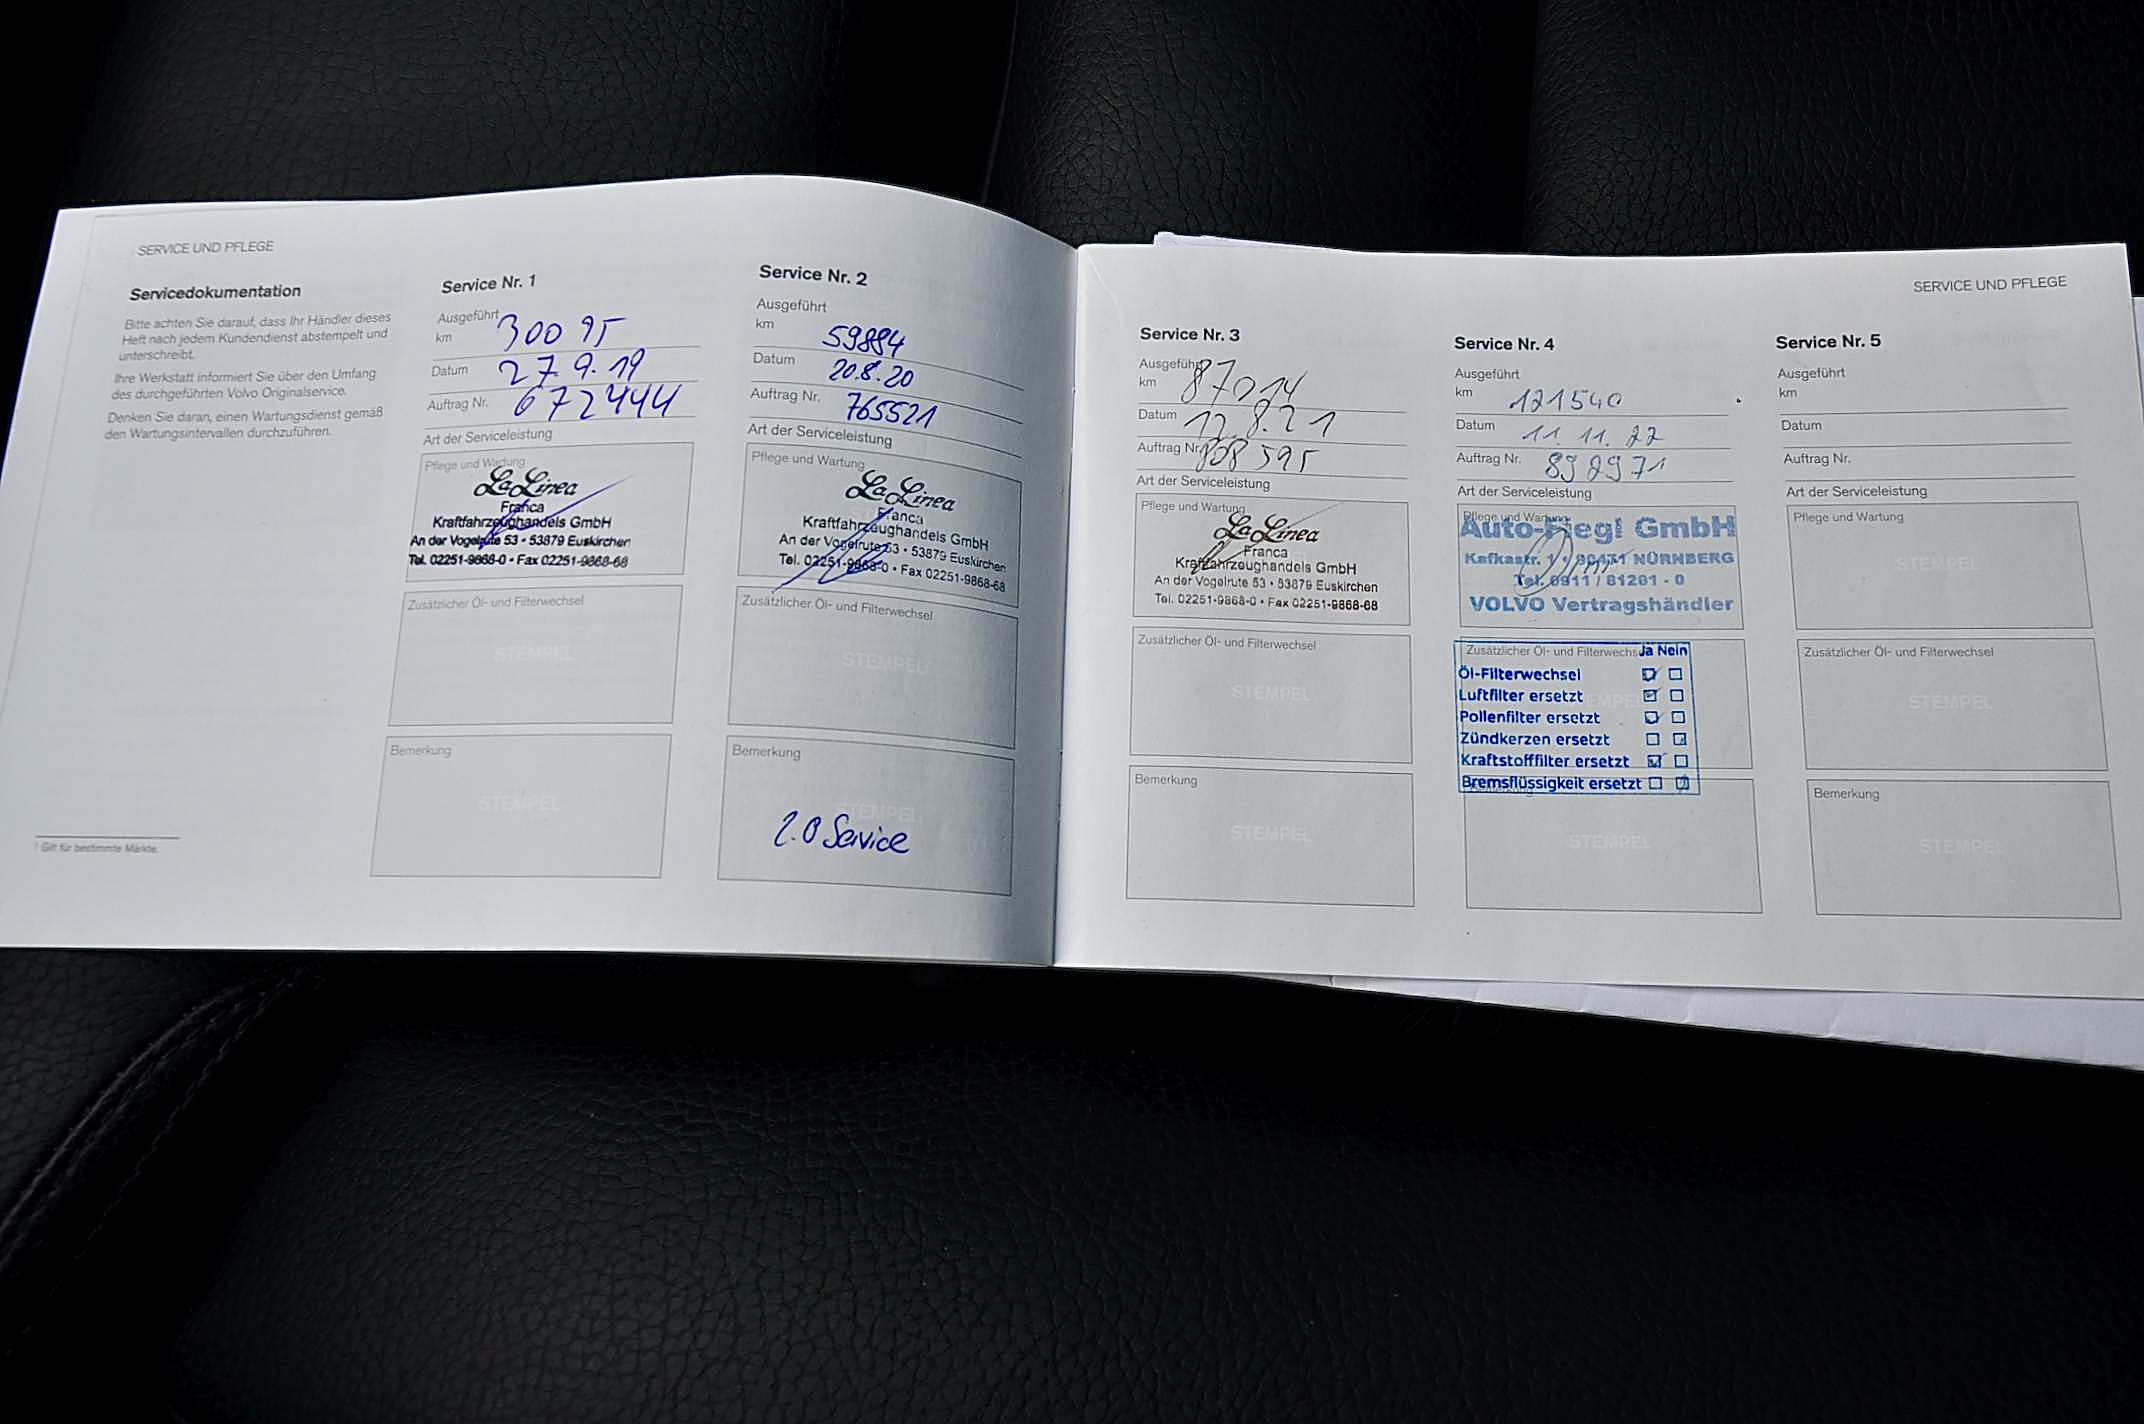 SERVICE UND PFLEGE
Servicedokumentation
Bitte achten Sie darauf, dass Ihr Händler dieses
Heft nach jedem Kundendienst abstempelt und
unterschreibt.
Ihre Werkstatt informiert Sie über den Umfang
des durchgeführten Volvo Originalservice.
Denken Sie daran, einen Wartungsdienst gemäß
den Wartungsintervallen durchzuführen.
1 Gilt für bestimmte Märkte.
Service Nr. 1
Ausgeführt
km 30095
Datum 27.9.19
Auftrag Nr. 672444
Art der Serviceleistung
Pflege und Wartung
La Linea
Franca
Kraftfahrzeughandels GmbH
An der Vogelrute 53 • 53879 Euskirchen
Tel. 02251-9868-0 • Fax 02251-9868-68
Zusätzlicher Öl- und Filterwechsel
STEMPEL
Bemerkung
STEMPEL
Service Nr. 2
Ausgeführt
km 59884
Datum 20.8.20
Auftrag Nr. 765521
Art der Serviceleistung
Pflege und Wartung
La Linea
Franca
Kraftfahrzeughandels GmbH
An der Vogelrute 53 • 53879 Euskirchen
Tel. 02251-9868-0 • Fax 02251-9868-68
Zusätzlicher Öl- und Filterwechsel
STEMPEL
Bemerkung
STEMPEL
2.0 Service
SERVICE UND PFLEGE
Service Nr. 3
Ausgeführt
km 87014
Datum 12.8.21
Auftrag Nr. 838595
Art der Serviceleistung
Pflege und Wartung
La Linea
Franca
Kraftfahrzeughandels GmbH
An der Vogelrute 53 • 53879 Euskirchen
Tel. 02251-9868-0 • Fax 02251-9868-68
Zusätzlicher Öl- und Filterwechsel
STEMPEL
Bemerkung
STEMPEL
Service Nr. 4
Ausgeführt
km 121540
Datum 11.11.22
Auftrag Nr. 892971
Art der Serviceleistung
Pflege und Wartung
Auto-Fiegl GmbH
Kafkastr. 1 • 90471 NÜRNBERG
Tel. 0911 / 81201 - 0
VOLVO Vertragshändler
Zusätzlicher Öl- und Filterwechs Ja Nein
Öl-Filterwechsel
Luftfilter ersetzt
Pollenfilter ersetzt
Zündkerzen ersetzt
Kraftstofffilter ersetzt
Bremsflüssigkeit ersetzt
STEMPEL
Service Nr. 5
Ausgeführt
km
Datum
Auftrag Nr.
Art der Serviceleistung
Pflege und Wartung
STEMPEL
Zusätzlicher Öl- und Filterwechsel
STEMPEL
Bemerkung
STEMPEL